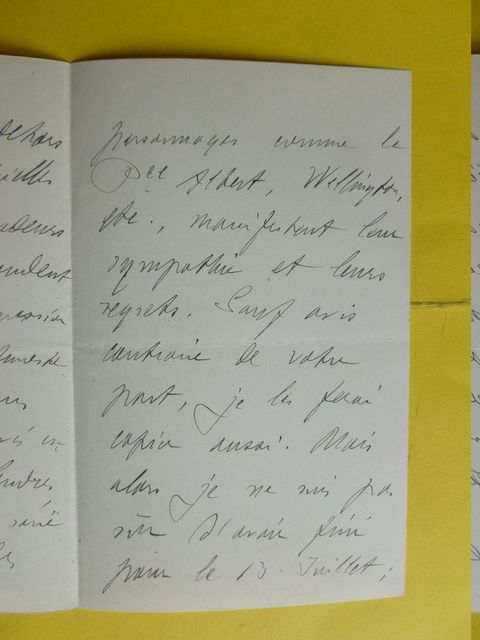 dehors
ielles
adeurs
endent
ression
personnages comme le
Pce Albert, Wellington,
etc., manifestent leur
sympathie et leurs
regrets. Sauf avis
contraire de votre
part, je les ferai
copier aussi. Mais
alors je ne suis pas
sûr d'avoir fini
pour le 13 Juillet ;